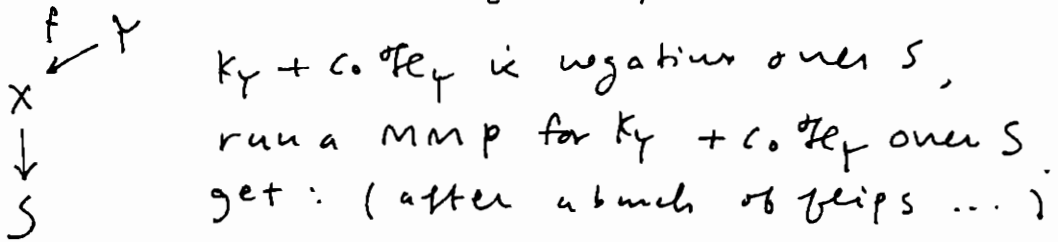 f Y
X
S
K_Y + c_0 ℋ_Y is negative over S,
run a MMP for K_Y + c_0 ℋ_Y over S.
get : (after a bunch of flips ... )